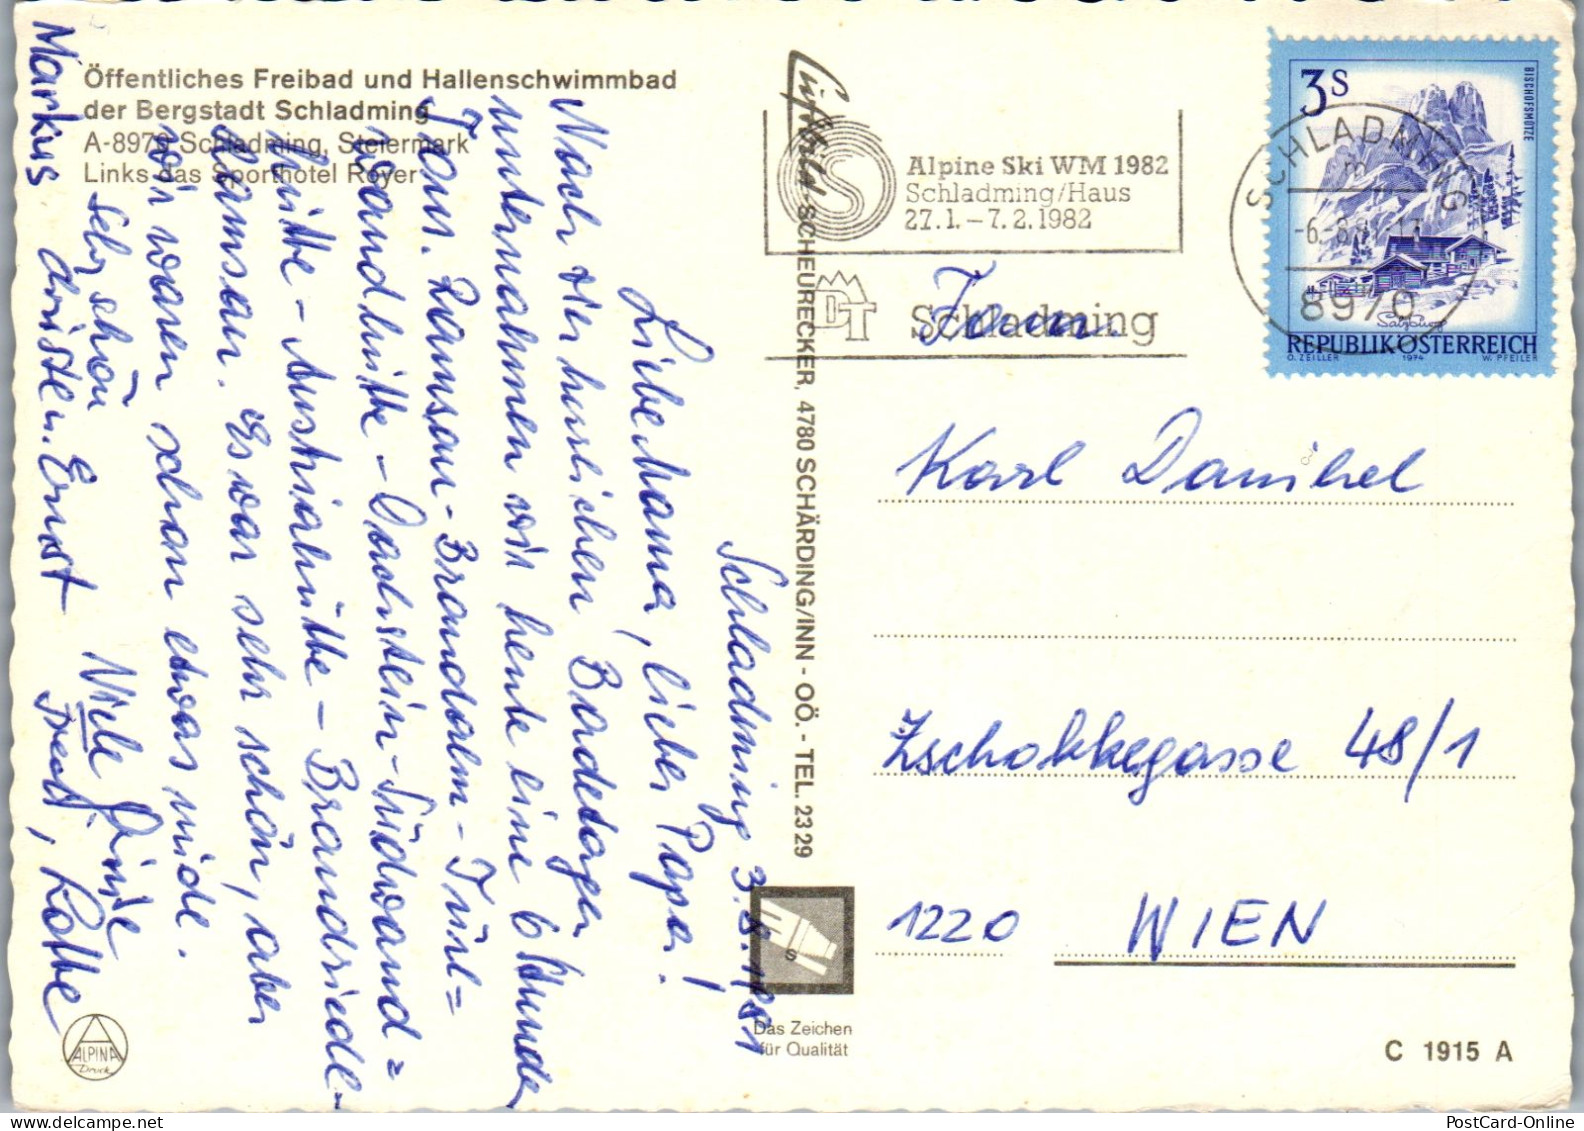 Öffentliches Freibad und Hallenschwimmbad
der Bergstadt Schladming
A-8970 Schladming, Steiermark
Links das Sporthotel Royer
Schladming 3.8.1981
Liebe Mama, lieber Papa!
Nach vier herrlichen Badetagen
unternahmen wir heute eine 6 Stunden
Tour. Ramsau - Brandalm - Türl=
wandhütte - Dachstein-Südwand=
hütte - Austriahütte - Brandried-
Ramsau. Es war sehr schön, aber
wir waren schon etwas müde.
Sehr schön
Viele
Markus Christl u. Ernst
Fred, Lotte
Lifthild-SCHEURECKER, 4780 SCHÄRDING/INN - OÖ. - TEL. 23 29
Alpine Ski WM 1982
Schladming/Haus
27.1. – 7.2.1982
Schladming
SCHLADMING
m
-6.-8.81-13
8970
3S
BISCHOFSMÜTZE
Salzburg
REPUBLIK ÖSTERREICH
O. ZEILLER 1974 W. PFEILER
Fam.
Karl
Zschokkegasse 48/1
1220 WIEN
S
Das Zeichen
für Qualität
ALPINA
Druck
C 1915 A
PostCard-Online